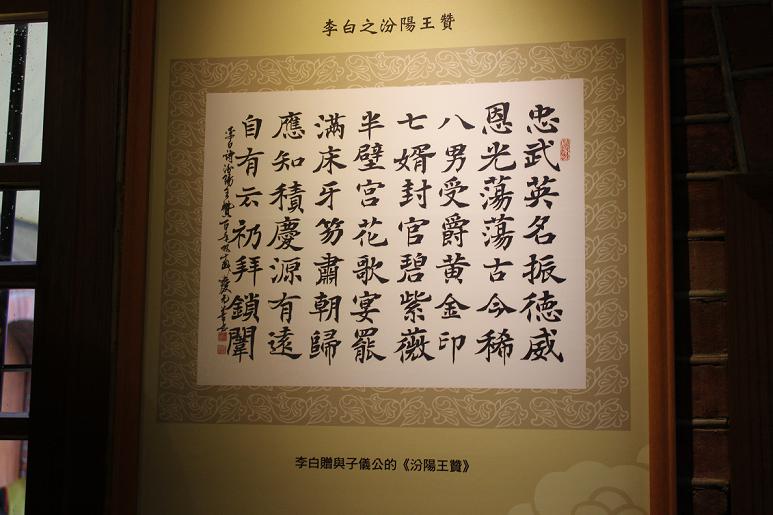 李白之汾陽王贊
忠武英名振德威
恩光蕩蕩古今稀
八男受爵黃金印
七婿封官碧紫薇
半壁宮花歌宴罷
滿床牙笏肅朝歸
應知積慶源有遠
自有云礽拜鎖闈
李白詩汾陽王贊
李白贈與子儀公的《汾陽王贊》